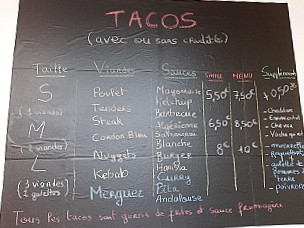 TACOS
(avec ou sans crudités)
Taille Viande Sauces SEUL MENU Suppléments
S Poulet Mayonnaise 5,50€ 7,50€ + 0,50€
(1 viande) Tenders Ketchup
Barbecue - Cheddar
M Steak Algérienne 6,50€ 8,50€ - Emmental
(2 viandes) Cordon Bleu Samouraï - Chèvre
Blanche - Vache qui rit
L Nuggets Burger 8€ 10€ - mozzarella
(3 viandes) Kebab Harissa
2 galettes Curry - galette de pommes de terre
Merguez Pita - poivrons
Andalouse
Tous les tacos sont garnis de frites et sauce fromagère